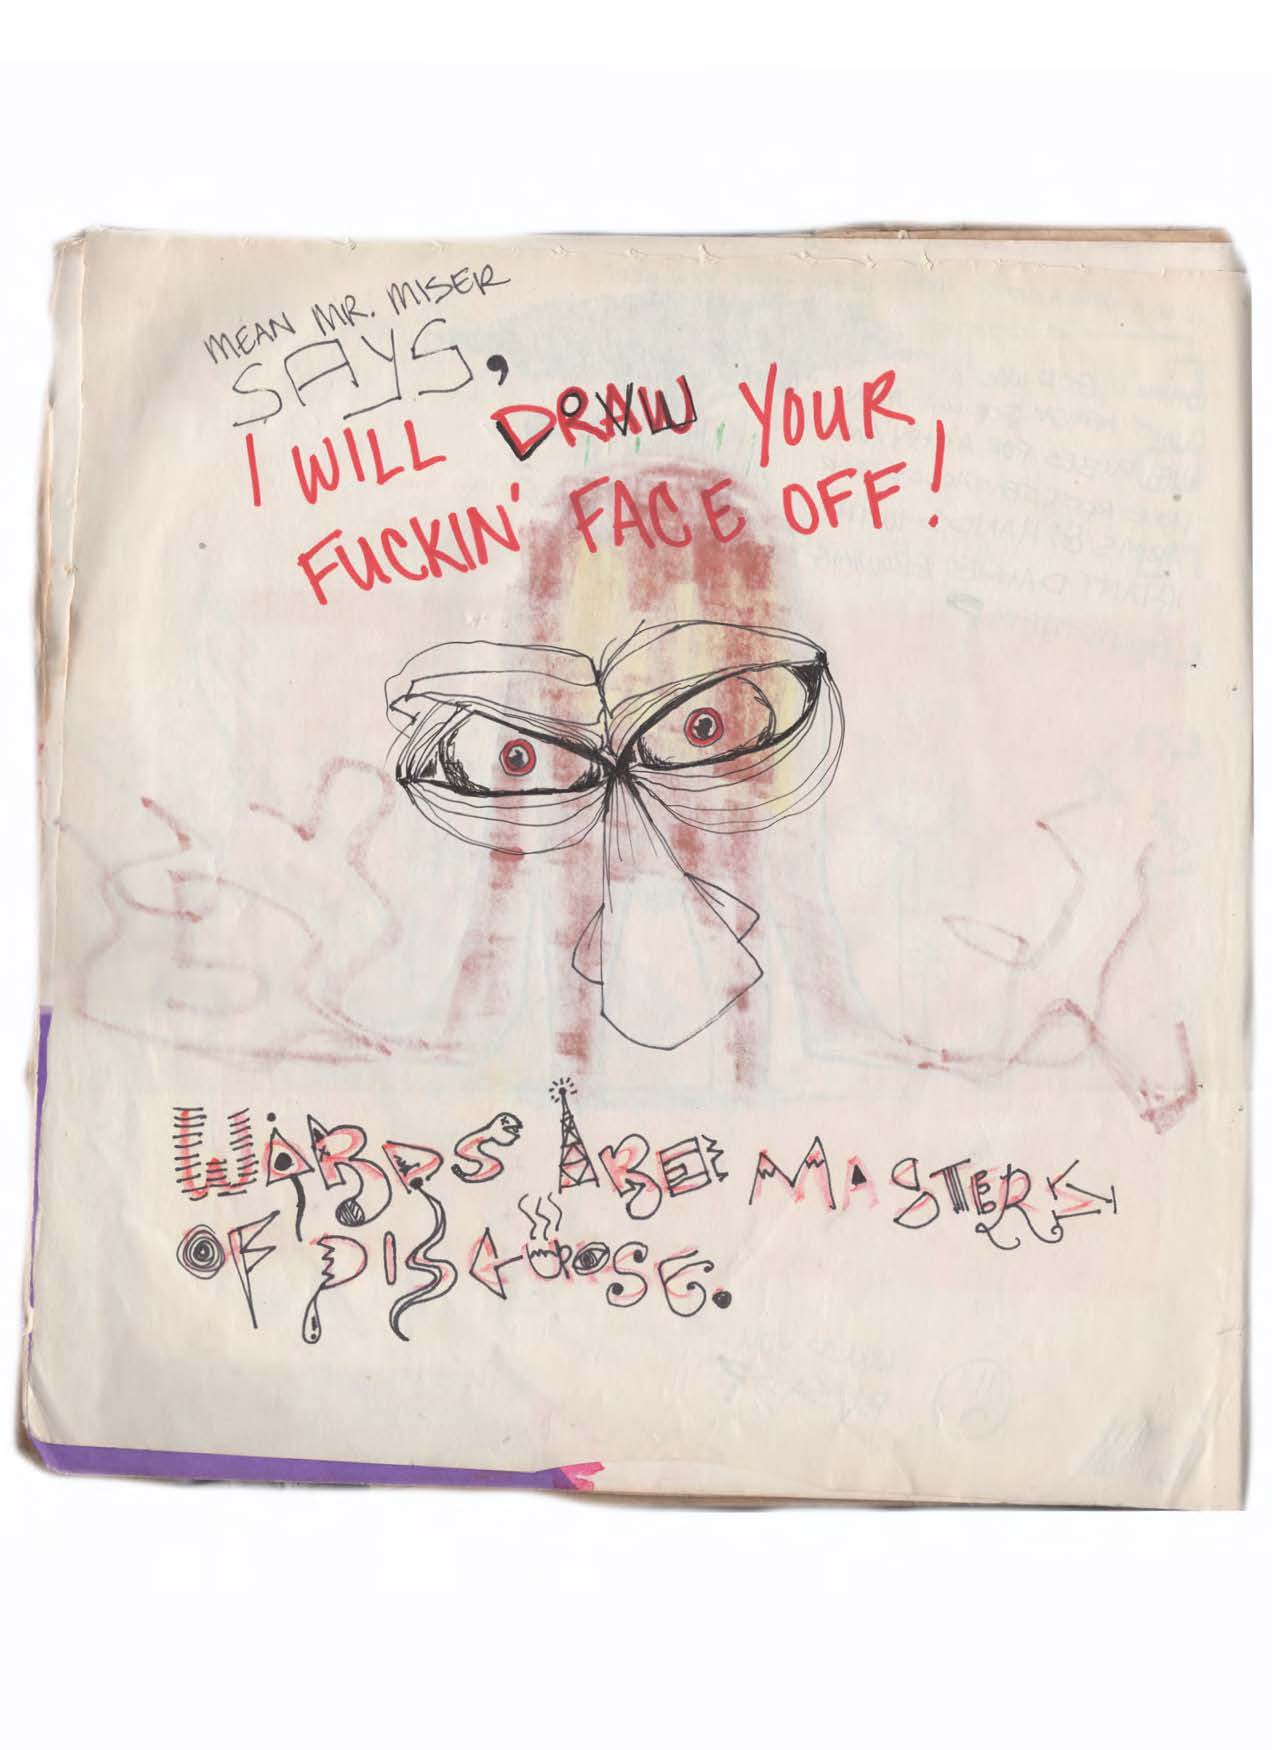 MEAN MR. MISER
SAYS,
I WILL DRAW YOUR
FUCKIN' FACE OFF!
WORDS ARE MASTERS
OF DISGUISE.